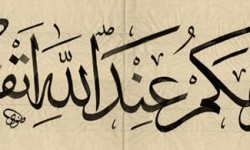 مكُمْ عِنْدَ اللّٰهِ اتق